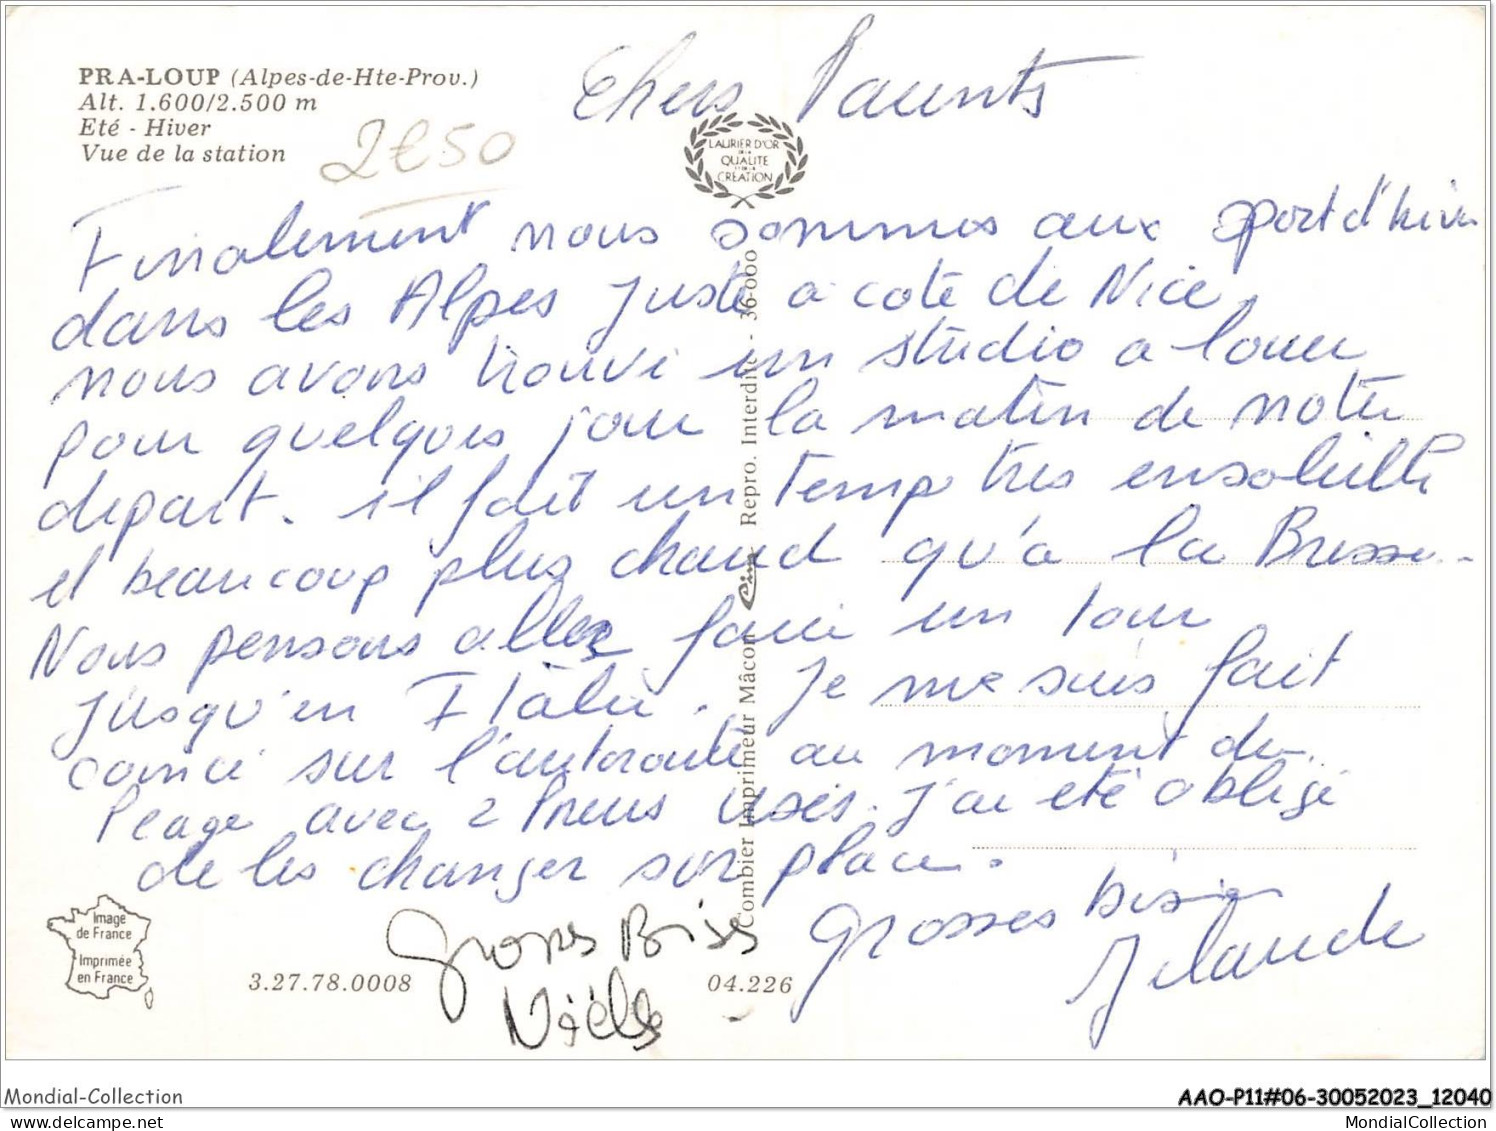 PRA-LOUP (Alpes-de-Hte-Prov.)
Alt. 1.600/2.500 m
Eté - Hiver
Vue de la station
2€50
Chers Parents
LAURIER D'OR
DE LA
QUALITE
ET DE LA
CREATION
Finalement nous sommes aux sport d'hiver
dans les Alpes juste a coté de Nice,
nous avons trouvé un studio a louer
pour quelques jour la matin de notre
depart. il fait un temp tres ensoleillé
et beaucoup plus chaud qu'a la Bresse.
Nous pensons aller faire un tour
jusqu'en Italie. Je me suis fait
coincé sur l'autoroute au moment du
Peage avec 2 Pneus usés. j'ai eté obligé
de les changer sur place.
Grosses bises
Grosses Bises
Noëlle
Combier Imprimeur Mâcon Cim Repro. Interdite - 36-000
Image
de France
Imprimée
en France
3.27.78.0008
04.226
Mondial-Collection
AAO-P11#06-30052023_12040
MondialCollection